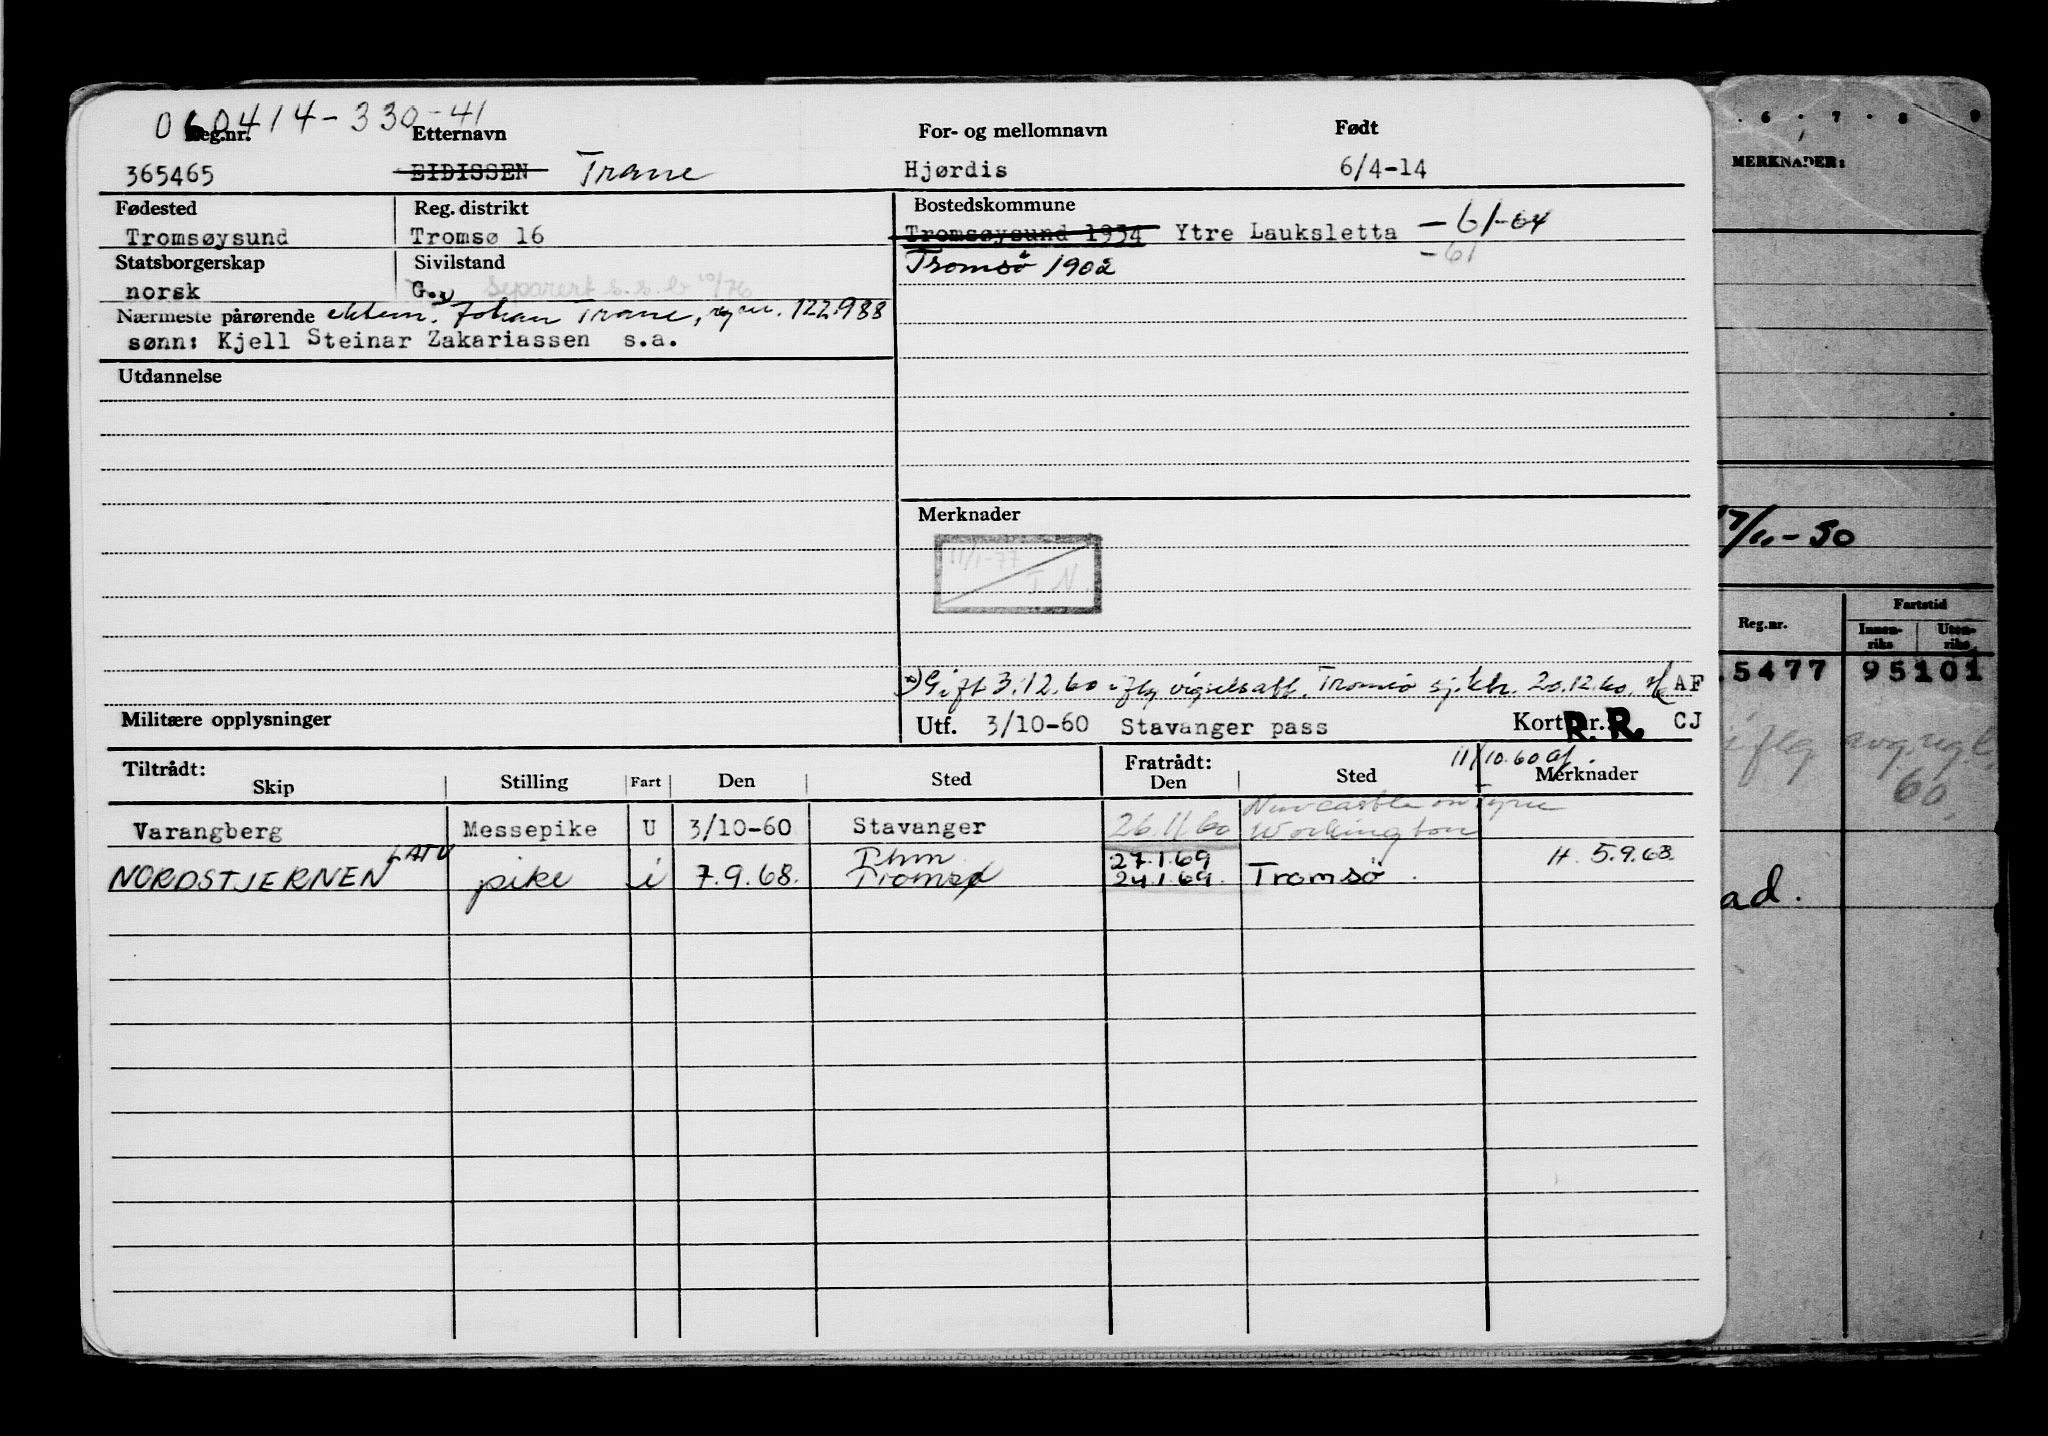 060414-330-41
Reg.nr. Etternavn For- og mellomnavn Født
365465 EIDISSEN Trane Hjørdis 6/4-14
Fødested Reg. distrikt Bostedskommune
Tromsøysund Tromsø 16 Tromsøysund 1934 Ytre Lauksletta -61-64
-61
Statsborgerskap Sivilstand Tromsø 1902
norsk G. Separert s.s.b 10/76
Nærmeste pårørende ektem. Johan Trane, reg nr. 122.988
sønn: Kjell Steinar Zakariassen s.a.
Utdannelse
Merknader
11/1-77
I.N.
Gift 3.12.60 iflg vigselsatt. Tromsø sj.ktr. 20.12.60. AF
Militære opplysninger Utf. 3/10-60 Stavanger pass Kort nr. R.R. CJ
11/10.60
Tiltrådt: Fratrådt:
Skip Stilling Fart Den Sted Den Sted Merknader
Newcastle on Tyne
Varangberg Messepike U 3/10-60 Stavanger 26.11.60 Workington
LATU Thm 27.1.69 H. 5.9.68.
NORDSTJERNEN pike i 7.9.68. Tromsø 24.1.69. Tromsø.
. 6 . 7 . 8 9
MERKNADER:
-50
Fartstid
Reg.nr. Innen-riks Uten-riks
5477 95101
iflg
60
ad.